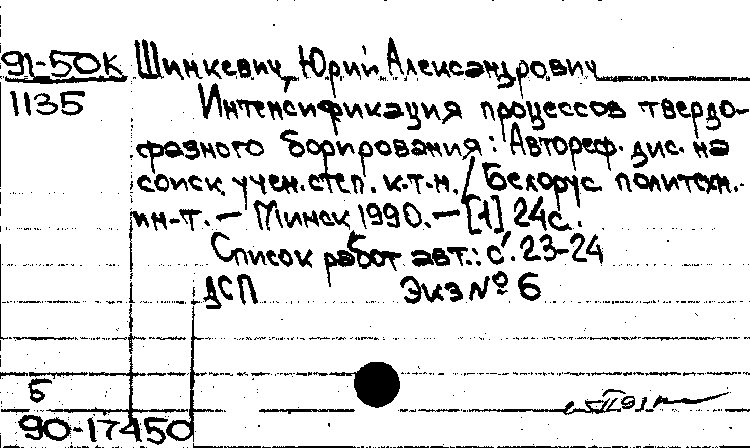 91-50К Шинкевич, Юрий Александрович
1135 Интенсификация процессов твердо-
фазного борирования: Автореф. дис. на
соиск. учен. степ. к.т.н. / Белорус. политехн.
ин-т. — Минск 1990. — [1] 24с.
Список работ авт.: с. 23-24
ДСП Экз № 6
5
90-17450